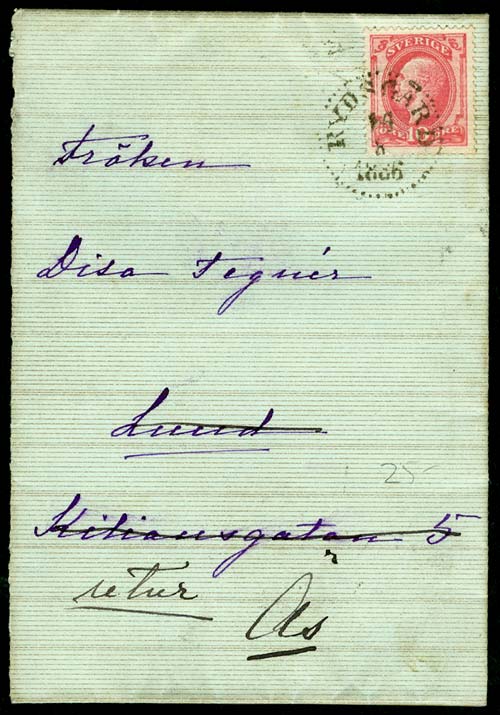 SVERIGE
RYDSGÅRD
1886
Fröken
Disa Tegnér
Lund
25-
Kiliansgatan 5
retur
Ås